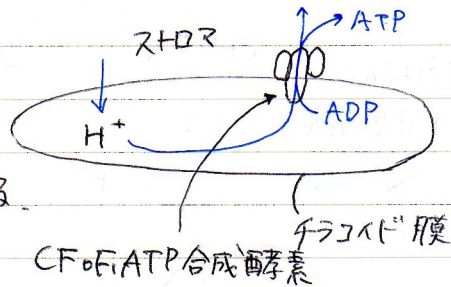 ストロマ
ATP
ADP
H⁺
チラコイド膜
CF₀F₁ATP合成酵素